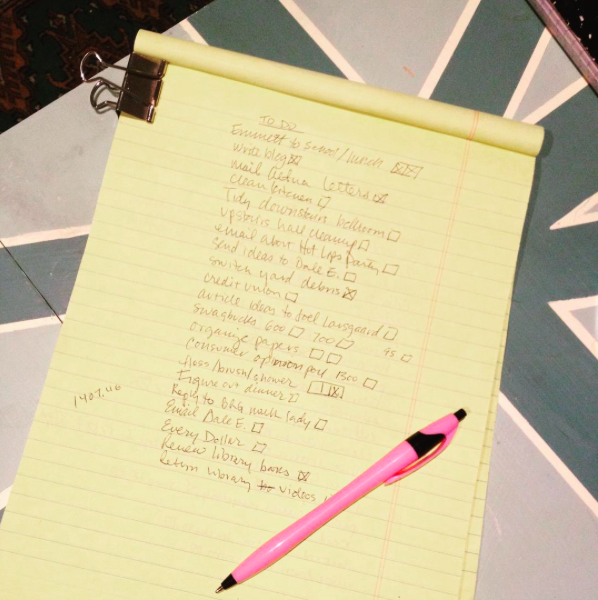 TO DO
Emmett to school/lunch
write blog
mail Aetna letters
clean kitchen
Tidy downstairs bathroom
upstairs hall cleaning
email about Hot Lips Party
send ideas to Dale E.
switch yard debris
credit union
article ideas to Joel
swagbucks 600 700 45
organize papers
Consumer opinion poll 1300
floss/brush/shower
Figure out dinner
Reply to lady
Email Dale E.
Every Dollar
Renew library books
Return library videos
1407.46